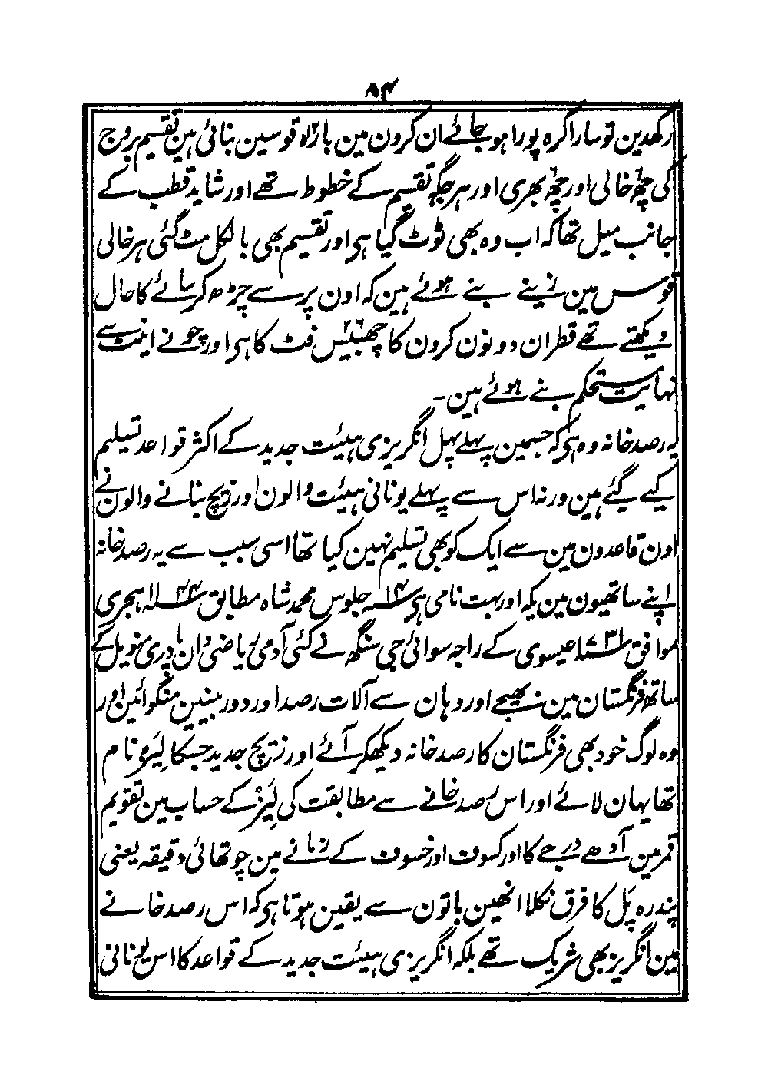 ۸۴
رکھدین تو سارا کرہ پورا ہو جائے ان کرون مین بارہ قوسین بنائی ہین تقسیم بروج
کی چھ خالی اور چھ بھری اور ہر جگہ تقسیم کے خطوط تھے اور شاید قطب کے
جانب میل تھا کہ اب وہ بھی ٹوٹ گیا ہی اور تقسیم بھی بالکل مٹ گئی ہر خالی
قوس مین زینے بنے ہوئے ہین کہ اون پر سے چڑھ کر سائے کا حال
دیکھتے تھے قطر ان دونون کرون کا چھبیس ۲۶ فٹ کا ہی اور چونے اینٹ سے
نہایت مستحکم بنے ہوئے ہین ۔
یہ رصد خانہ وہ ہی کہ جسمین پہلے پہل انگریزی ہیئت جدید کے اکثر قواعد تسلیم
کیے گئے ہین ورنہ اس سے پہلے یونانی ہیئت والون اور زیچ بنانے والون نے
اون قاعدون مین سے ایک کو بھی تسلیم نہین کیا تھا اسی سبب سے یہ رصد خانہ
اپنے ساتھیون مین یکہ اور بہت نامی ہی سنہ ۱۴ جلوس محمد شاہ مطابق سنہ ۱۱۴۴ ہجری
موافق سنہ ۱۷۳۱ عیسوی کے راجہ سوائی جی سنگھ نے کئی آدمی ریاضی دان پادری منویل کے
ساتھ فرنگستان مین بھیجے اور وہان سے آلات رصد اور دوربینین منگوائین اور
وہ لوگ خود بھی فرنگستان کا رصد خانہ دیکھکر آئے اور زیچ جدید جسکا لیر نام
تھا یہان لائے اور اس رصد خانے سے مطابقت کی لیر کے حساب مین تقویم
قمر مین آدھے درجے کا اور کسوف اور خسوف کے زمانے مین چوتھائی دقیقہ یعنی
پندرہ پل کا فرق نکلا انھین باتون سے یقین ہوتا ہی کہ اس رصد خانے
مین انگریز بھی شریک تھے بلکہ انگریزی ہیئت جدید کے قواعد کا اس یونانی